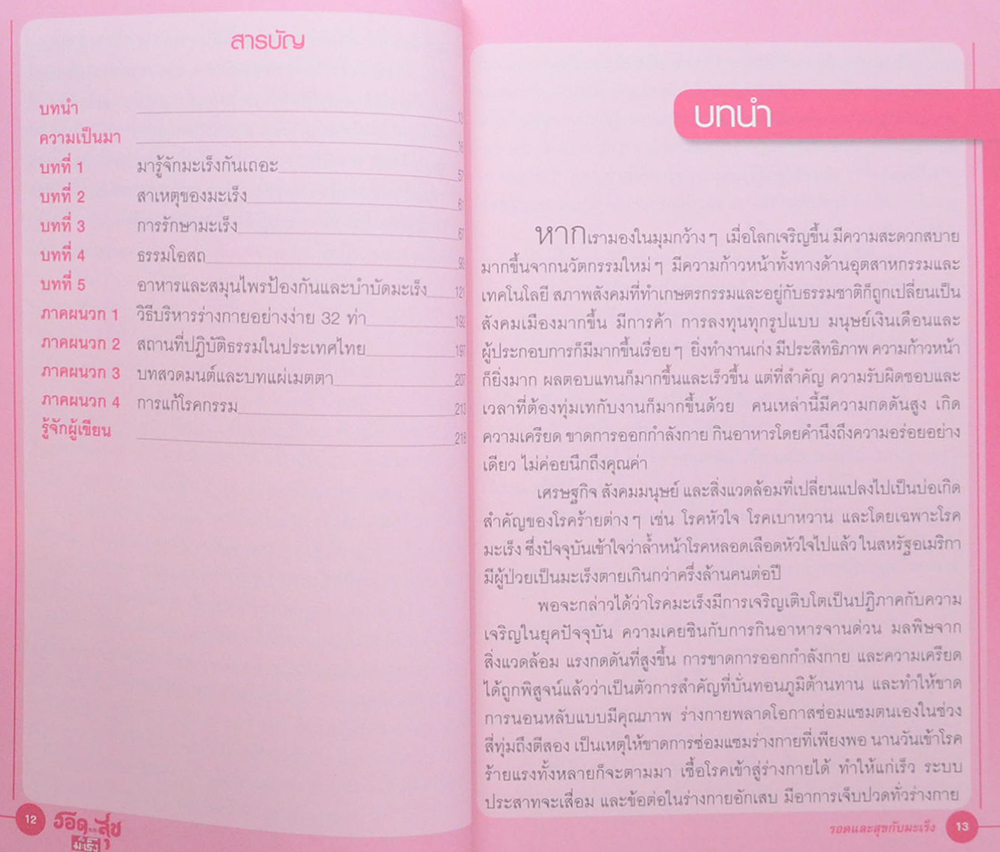 สารบัญ
บทนำ
ความเป็นมา
บทที่ 1 มารู้จักมะเร็งกันเถอะ 57
บทที่ 2 สาเหตุของมะเร็ง 61
บทที่ 3 การรักษามะเร็ง 67
บทที่ 4 ธรรมโอสถ
บทที่ 5 อาหารและสมุนไพรป้องกันและบำบัดมะเร็ง 121
ภาคผนวก 1 วิธีบริหารร่างกายอย่างง่าย 32 ท่า 192
ภาคผนวก 2 สถานที่ปฏิบัติธรรมในประเทศไทย 197
ภาคผนวก 3 บทสวดมนต์และบทแผ่เมตตา 207
ภาคผนวก 4 การแก้โรคกรรม 213
รู้จักผู้เขียน 218
12 รอดและสุข
มะเร็ง
บทนำ
หากเรามองในมุมกว้างๆ เมื่อโลกเจริญขึ้น มีความสะดวกสบาย
มากขึ้นจากนวัตกรรมใหม่ๆ มีความก้าวหน้าทั้งทางด้านอุตสาหกรรมและ
เทคโนโลยี สภาพสังคมที่ทำเกษตรกรรมและอยู่กับธรรมชาติก็ถูกเปลี่ยนเป็น
สังคมเมืองมากขึ้น มีการค้า การลงทุนทุกรูปแบบ มนุษย์เงินเดือนและ
ผู้ประกอบการก็มีมากขึ้นเรื่อยๆ ยิ่งทำงานเก่ง มีประสิทธิภาพ ความก้าวหน้า
ก็ยิ่งมาก ผลตอบแทนก็มากขึ้นและเร็วขึ้น แต่ที่สำคัญ ความรับผิดชอบและ
เวลาที่ต้องทุ่มเทกับงานก็มากขึ้นด้วย คนเหล่านี้มีความกดดันสูง เกิด
ความเครียด ขาดการออกกำลังกาย กินอาหารโดยคำนึงถึงความอร่อยอย่าง
เดียว ไม่ค่อยนึกถึงคุณค่า
เศรษฐกิจ สังคมมนุษย์ และสิ่งแวดล้อมที่เปลี่ยนแปลงไปเป็นบ่อเกิด
สำคัญของโรคร้ายต่างๆ เช่น โรคหัวใจ โรคเบาหวาน และโดยเฉพาะโรค
มะเร็ง ซึ่งปัจจุบันเข้าใจว่าล้ำหน้าโรคหลอดเลือดหัวใจไปแล้ว ในสหรัฐอเมริกา
มีผู้ป่วยเป็นมะเร็งตายเกินกว่าครึ่งล้านคนต่อปี
พอจะกล่าวได้ว่าโรคมะเร็งมีการเจริญเติบโตเป็นปฏิภาคกับความ
เจริญในยุคปัจจุบัน ความเคยชินกับการกินอาหารจานด่วน มลพิษจาก
สิ่งแวดล้อม แรงกดดันที่สูงขึ้น การขาดการออกกำลังกาย และความเครียด
ได้ถูกพิสูจน์แล้วว่าเป็นตัวการสำคัญที่บั่นทอนภูมิต้านทาน และทำให้ขาด
การนอนหลับแบบมีคุณภาพ ร่างกายพลาดโอกาสซ่อมแซมตนเองในช่วง
สี่ทุ่มถึงตีสอง เป็นเหตุให้ขาดการซ่อมแซมร่างกายที่เพียงพอ นานวันเข้าโรค
ร้ายแรงทั้งหลายก็จะตามมา เชื้อโรคเข้าสู่ร่างกายได้ ทำให้แก่เร็ว ระบบ
ประสาทจะเสื่อม และข้อต่อในร่างกายอักเสบ มีอาการเจ็บปวดทั่วร่างกาย
รอดและสุขกับมะเร็ง 13